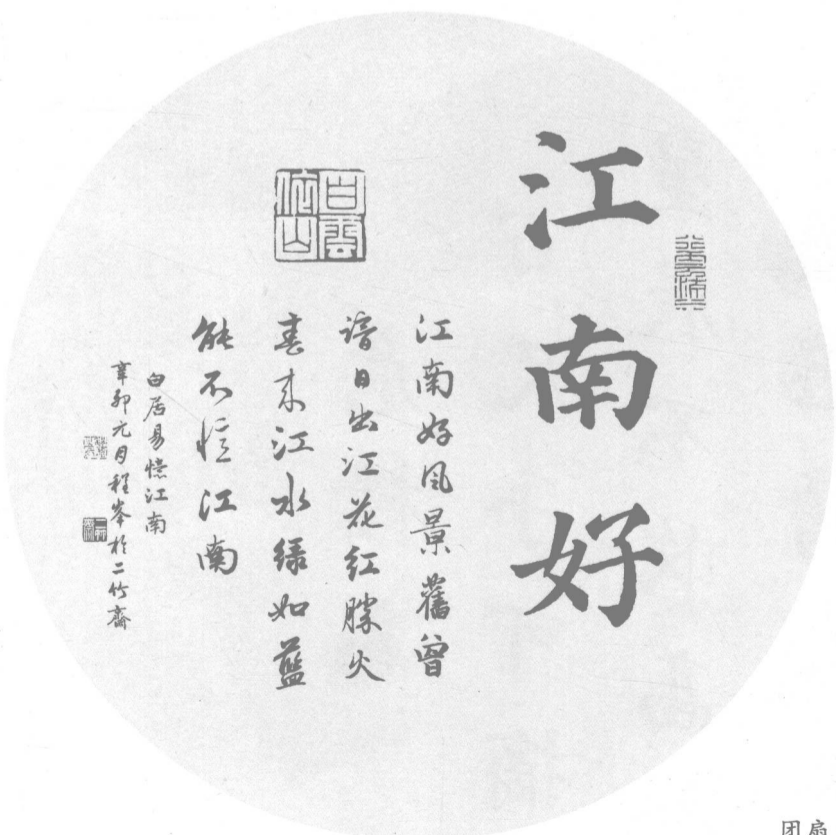 江南好
江南好风景舊曾
谙日出江花红勝火
春来江水绿如藍
能不憶江南
白居易憶江南
辛卯元月程峯於二竹齋
团扇